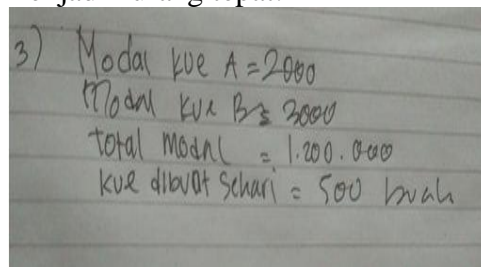 3) Modal kue A = 2000
Modal kue B = 3000
total modal = 1.200.000
kue dibuat sehari = 500 buah